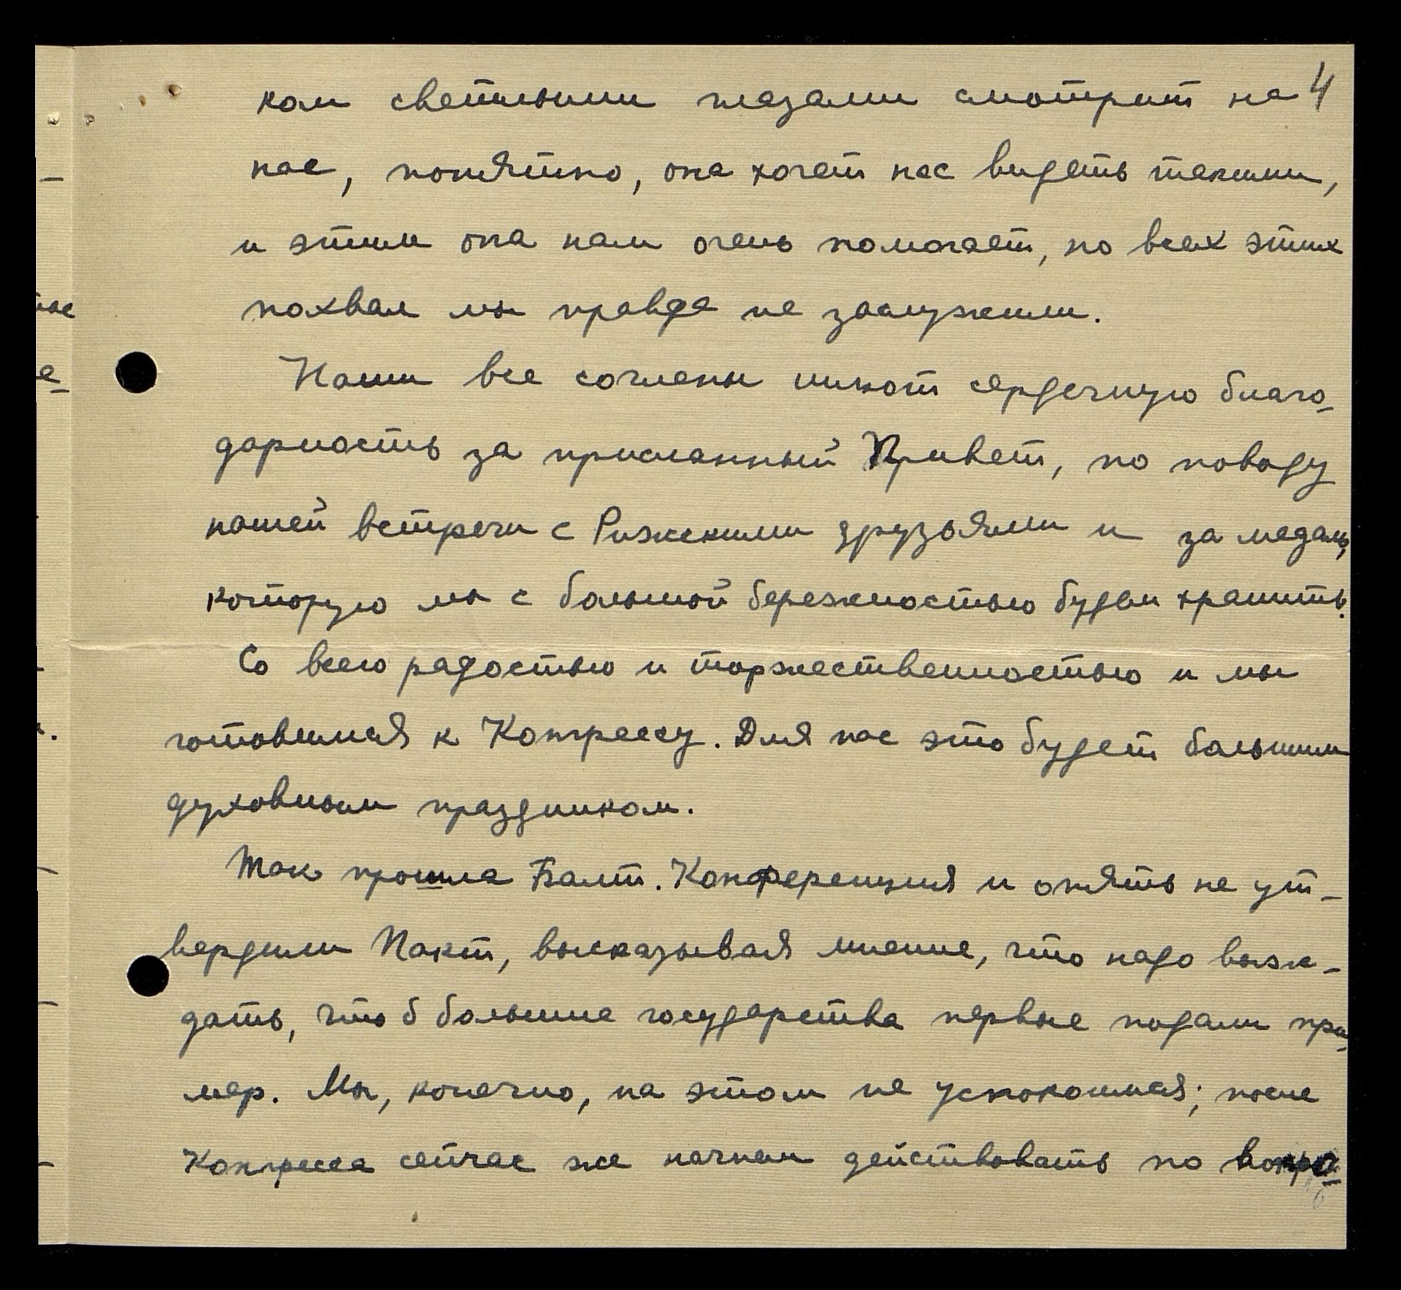 ком светлыми глазами смотрит на 4
нас, понятно, она хочет нас видеть такими,
и этим она нам очень помогает, но всех этих
похвал мы правда не заслужили.
Наши все сочлены шлют сердечную благо-
дарность за присланный Привет, по поводу
нашей встречи с Рижскими друзьями и за медаль,
которую мы с большой бережностью будем хранить.
Со всею радостью и торжественностью и мы
готовимся к Конгрессу. Для нас это будет большим
духовным праздником.
Так прошла Балт. Конференция и опять не ут-
вердили Пакт, высказывая мнение, что надо выж-
дать, что б большие государства первые подали при-
мер. Мы, конечно, на этом не успокоимся; после
Конгресса сейчас же начнем действовать по вопро-